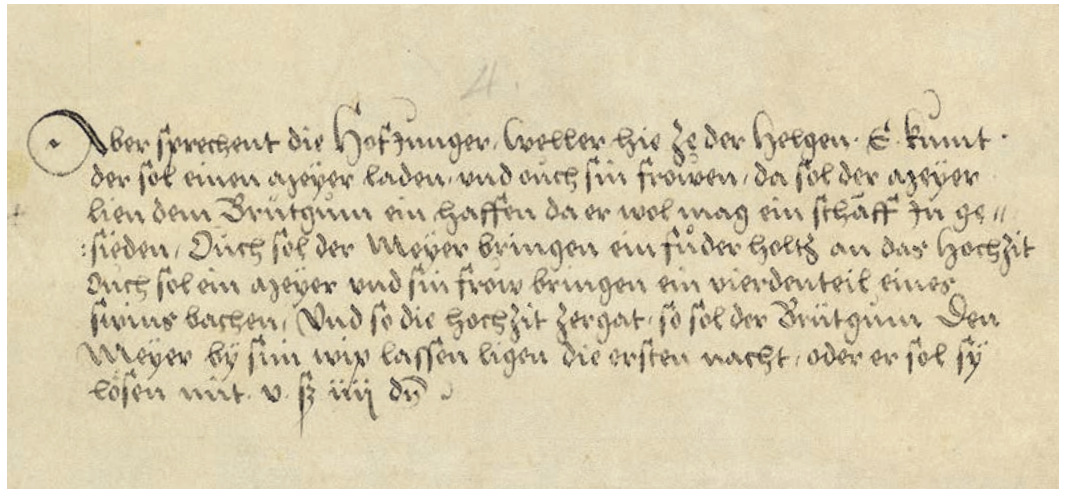 4.
Aber sprechent die Hofjünger, weller hie ze der helgen · E · kumt ·
der sol einen meyer laden, und ouch sin frowen, da sol der meyer
lien dem Brütgum ein haffen da er wol mag ein schaff jn ge〃
:sieden, Ouch sol der Meyer bringen ein fůder holtz an das Hochzit
Ouch sol ein meyer und sin frow bringen ein vierdenteil eines
swins bachen, Und so die hochzit zergat, so sol der Brütgum Den
Meyer by sim wip lassen ligen die ersten nacht, oder er sol sy
lösen mit · v · ß iiij dn